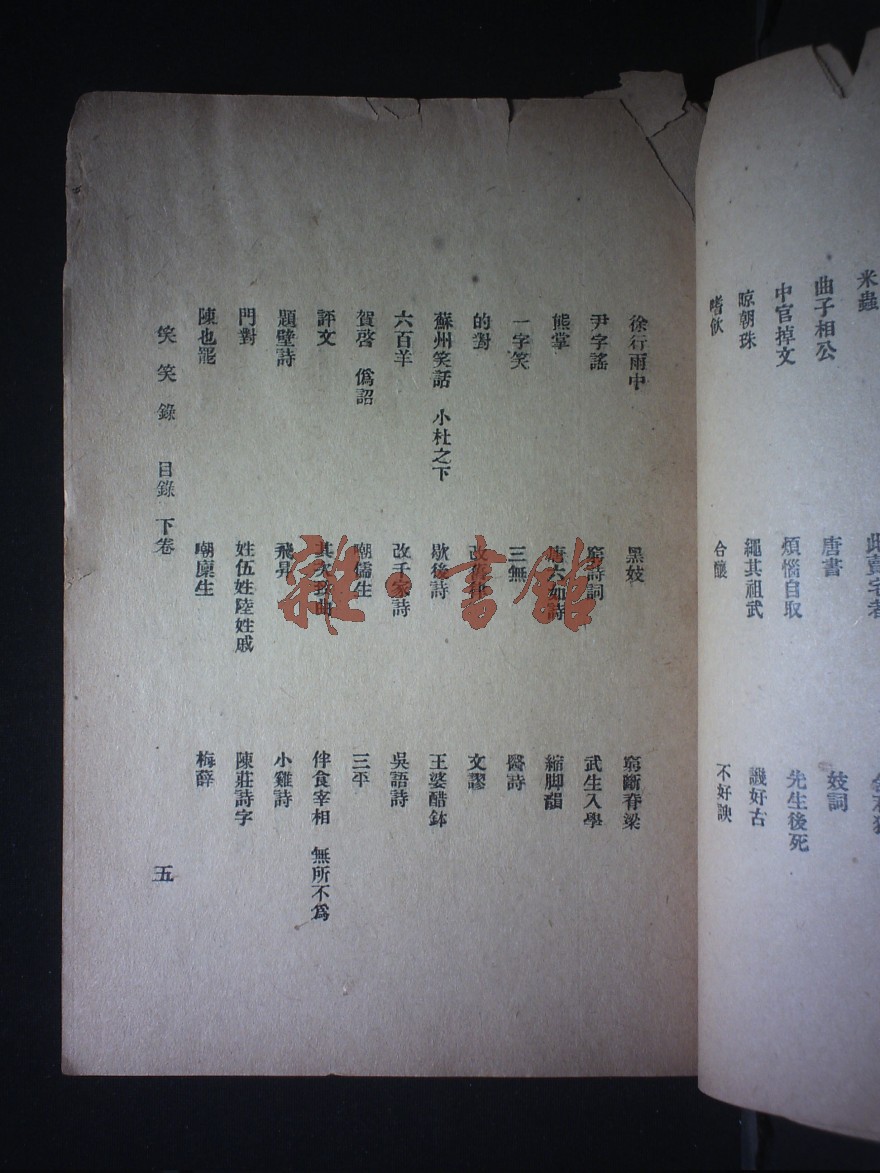 米蟲　此賣宅者
曲子相公　唐書　妓詞
中官掉文　煩惱自取　先生後死
晾朝珠　繩其祖武　譏好古
嗜飲　合釀　不好諛
徐行雨中　黑妓　窮斷脊梁
尹字謠　窮詩詞　武生入學
熊掌　唐六如詩　縮脚韻
一字笑　三無　醫詩
的對　改律　文謬
蘇州笑話　小杜之下　歇後詩　王婆醋鉢
六百羊　改千家詩　吳語詩
賀啓　僞詔　嘲儒生　三平
評文　其次致曲　伴食宰相　無所不爲
題壁詩　飛昇　小雞詩
門對　姓伍姓陸姓戚　陳莊詩字
陳也罷　嘲廩生　梅薛
笑笑錄　目錄　下卷　五
雜·書館